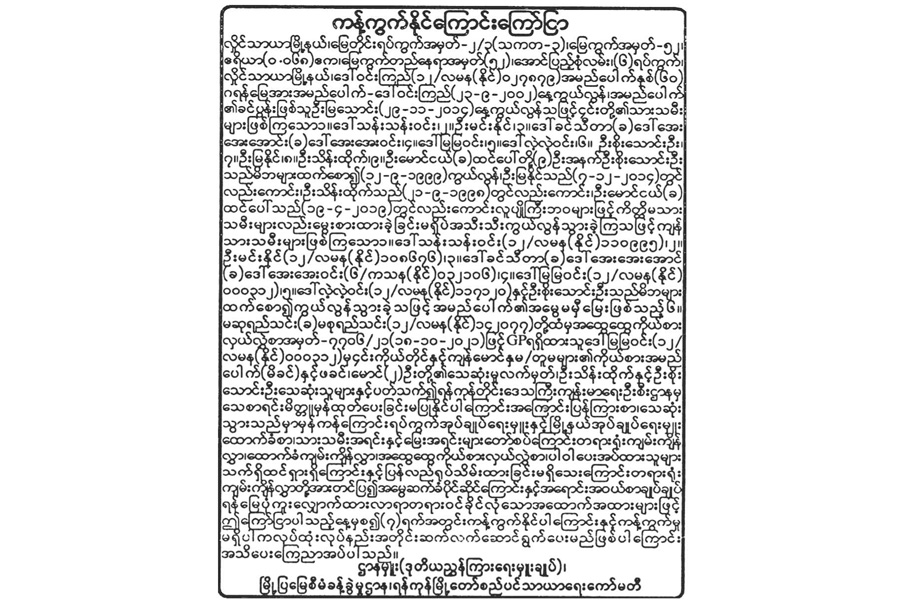 ကန့်ကွက်နိုင်ကြောင်းကြော်ငြာ
လှိုင်သာယာမြို့နယ်၊မြေတိုင်းရပ်ကွက်အမှတ်-၂/၃(သကတ-၃)၊မြေကွက်အမှတ်-၅၂၊
ဧရိယာ(၀.၀၆၈)ဧက၊မြေကွက်တည်နေရာအမှတ်(၅၂)၊အောင်ပြည့်စုံလမ်း၊(၆)ရပ်ကွက်၊
လှိုင်သာယာမြို့နယ်၊ဒေါ်ဝင်းကြည်(၁၂/လမန(နိုင်)၀၂၇၈၇၉)အမည်ပေါက်နှစ်(၆၀)
ဂရန်မြေအားအမည်ပေါက်-ဒေါ်ဝင်းကြည်(၂၃-၉-၂၀၀၂)နေ့ကွယ်လွန်၊အမည်ပေါက်
၏ခင်ပွန်းဖြစ်သူဦးမြသောင်း(၂၉-၁၁-၂၀၁၄)နေ့ကွယ်လွန်သဖြင့်၎င်းတို့၏သားသမီး
များဖြစ်ကြသော၁။ဒေါ်သန်းသန်းဝင်း၊၂။ဦးမင်းနိုင်၊၃။ဒေါ်ခင်သီတာ(ခ)ဒေါ်အေး
အေးအောင်း(ခ)ဒေါ်အေးအေးဝင်း၊၄။ဒေါ်မြမြဝင်း၊၅။ဒေါ်လှဲ့လှဲ့ဝင်း၊၆။ ဦးစိုးသောင်းဦး၊
၇။ဦးမြနိုင်၊၈။ဦးသိန်းထိုက်၊၉။ဦးမောင်ငယ်(ခ)ထင်ပေါ်တို့(၉)ဦးအနက်ဦးစိုးသောင်းဦး
သည်မိဘများထက်စော၍(၁၂-၉-၁၉၉၉)ကွယ်လွန်၊ဦးမြနိုင်သည်(၇-၁၂-၂၀၁၄)တွင်
လည်းကောင်း၊ဦးသိန်းထိုက်သည်(၂၁-၉-၁၉၉၈)တွင်လည်းကောင်း၊ဦးမောင်ငယ်(ခ)
ထင်ပေါ်သည်(၁၉-၄-၂၀၁၉)တွင်လည်းကောင်းလူပျိုကြီးဘဝများဖြင့်ကိတ္တိမသား
သမီးများလည်းမွေးစားထားခဲ့ခြင်းမရှိပဲအသီးသီးကွယ်လွန်သွားခဲ့ကြသဖြင့်ကျန်
သားသမီးများဖြစ်ကြသော၁။ဒေါ်သန်းသန်းဝင်း(၁၂/လမန(နိုင်)၁၁၀၉၉၅)၊၂။
ဦးမင်းနိုင်(၁၂/လမန(နိုင်)၁၀၈၆၇၆)၊၃။ဒေါ်ခင်သီတာ(ခ)ဒေါ်အေးအေးအောင်
(ခ)ဒေါ်အေးအေးဝင်း(၆/ကသန(နိုင်)၀၃၂၁၀၆)၊၄။ဒေါ်မြမြဝင်း(၁၂/လမန(နိုင်)
၀၀၀၃၁၂)၊၅။ဒေါ်လှဲ့လှဲ့ဝင်း(၁၂/လမန(နိုင်)၁၁၇၁၂၀)နှင့်ဦးစိုးသောင်းဦးသည်မိဘများ
ထက်စော၍ကွယ်လွန်သွားခဲ့သဖြင့်အမည်ပေါက်၏အမွေမမှီမြေးဖြစ်သည့်၆။
မဆုရည်သင်း(ခ)မစုရည်သင်း(၁၂/လမန(နိုင်)၁၄၂၀၇၇)တို့ထံမှအထွေထွေကိုယ်စား
လှယ်လွှဲစာအမှတ်-၇၇၀၆/၂၁(၁၈-၁၀-၂၀၂၁)ဖြင့်GPရရှိထားသူဒေါ်မြမြဝင်း(၁၂/
လမန(နိုင်)၀၀၀၃၁၂)မှ၎င်းကိုယ်တိုင်နှင့်ကျန်မောင်နှမ/တူမများ၏ကိုယ်စားအမည်
ပေါက်(မိခင်)နှင့်ဖခင်၊မောင်(၂)ဦးတို့၏သေဆုံးမှုလက်မှတ်၊ဦးသိန်းထိုက်နှင့်ဦးစိုး
သောင်းဦးသေဆုံးသူများနှင့်ပတ်သက်၍ရန်ကုန်တိုင်းဒေသကြီးကျန်းမာရေးဦးစီးဌာနမှ
သေစာရင်းမိတ္တူမှန်ထုတ်ပေးခြင်းမပြုနိုင်ပါကြောင်းအကြောင်းပြန်ကြားစာ၊သေဆုံး
သွားသည်မှာမှန်ကန်ကြောင်းရပ်ကွက်အုပ်ချုပ်ရေးမှူးနှင့်မြို့နယ်အုပ်ချုပ်ရေးမှူး
ထောက်ခံစာ၊သားသမီးအရင်းနှင့်မြေးအရင်းများတော်စပ်ကြောင်းတရားရုံးကျမ်းကျိန်
လွှာ၊ထောက်ခံကျမ်းကျိန်လွှာ၊အထွေထွေကိုယ်စားလှယ်လွှဲစာ၊ပါဝါပေးအပ်ထားသူများ
သက်ရှိထင်ရှားရှိကြောင်းနှင့်ပြန်လည်ရုပ်သိမ်းထားခြင်းမရှိသေးကြောင်းတရားရုံး
ကျမ်းကျိန်လွှာတို့အားတင်ပြ၍အမွေဆက်ခံပိုင်ဆိုင်ကြောင်းနှင့်အရောင်းအဝယ်စာချုပ်ချုပ်
ရန်မြေပုံကူးလျှောက်ထားလာရာတရားဝင်ခိုင်လုံသောအထောက်အထားများဖြင့်
ဤကြော်ငြာပါသည့်နေ့မှစ၍(၇)ရက်အတွင်းကန့်ကွက်နိုင်ပါကြောင်းနှင့်ကန့်ကွက်မှု
မရှိပါကလုပ်ထုံးလုပ်နည်းအတိုင်းဆက်လက်ဆောင်ရွက်ပေးမည်ဖြစ်ပါကြောင်း
အသိပေးကြေညာအပ်ပါသည်။
ဌာနမှူး(ဒုတိယညွှန်ကြားရေးမှူးချုပ်)၊
မြို့ပြမြေစီမံခန့်ခွဲမှုဌာန၊ရန်ကုန်မြို့တော်စည်ပင်သာယာရေးကော်မတီ